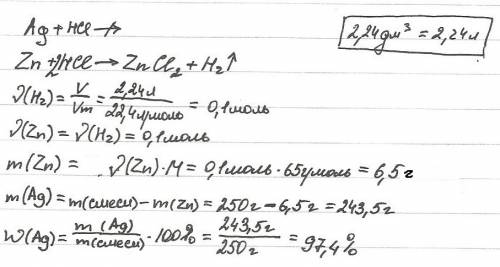 Ag + HCl ↛
2,24 дм³ = 2,24 л
Zn + 2HCl → ZnCl₂ + H₂↑
ν(H₂) = V/Vm = 2,24 л / 22,4 л/моль = 0,1 моль
ν(Zn) = ν(H₂) = 0,1 моль
m(Zn) = ν(Zn) · M = 0,1 моль · 65 г/моль = 6,5 г
m(Ag) = m(смеси) − m(Zn) = 250 г − 6,5 г = 243,5 г
W(Ag) = m(Ag) / m(смеси) · 100% = 243,5 г / 250 г = 97,4%